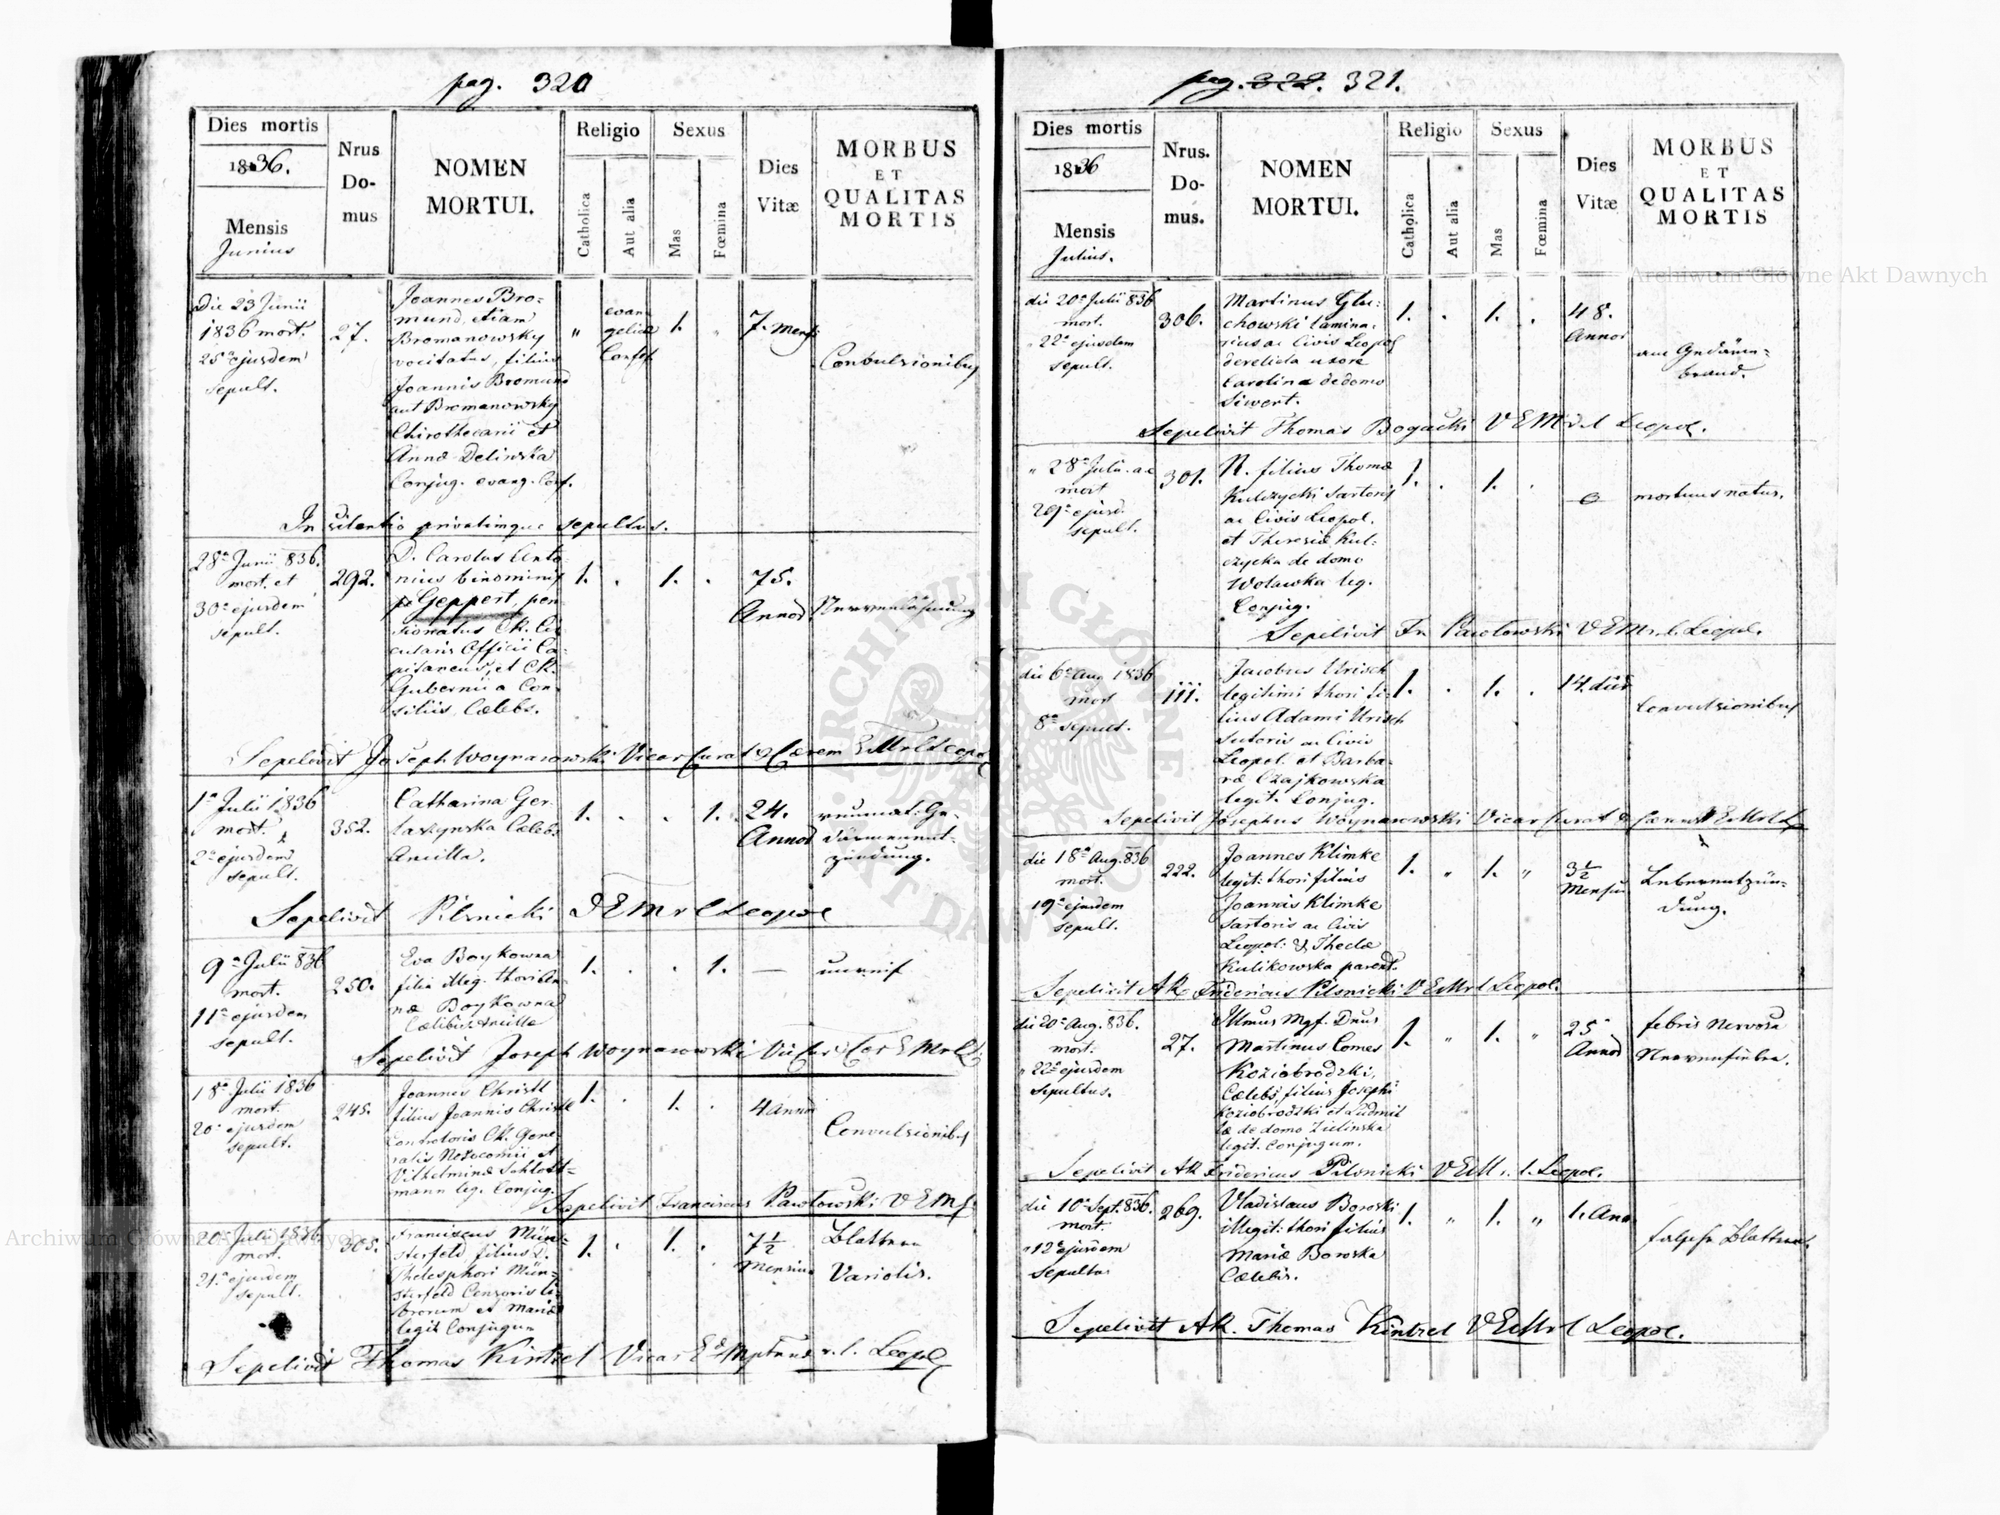 pag. 320
Dies mortis
1836.
Mensis
Junius
Nrus
Do-
mus
NOMEN
MORTUI.
Religio
Catholica
Aut alia
Sexus
Mas
Fœmina
Dies
Vitæ
MORBUS
ET
QUALITAS
MORTIS
Die 23 Junii
1836 mort.
25a ejusdem
sepult.
27.
Joannes Bro-
mund, etiam
Bromanowsky
vocitatus, filius
Joannis Bromund
aut Bromanowsky
Chirothecarii et
Annæ Delinska
Conjug. evang. Conf.
"
evan
gelicæ
Confess
1.
"
7. Mens
Convulsionibus
In silentio privatimque sepultus.
28a Junii 836.
mort. et
30a ejusdem
sepult.
292.
D. Carolus Anto
nius binominis
de Geppert, pen
sionatus CR. Cir
cularis Officii Ca-
pitaneus, et CR.
Gubernii a Con-
siliis, Cælebs.
1.
.
1.
.
75.
Annor
Nervenlähmung
Sepelivit Joseph Woynarowski Vicar Curat & Cærem E Mrl Leopol
1a Julii 1836
mort.
2a ejusdem
sepult.
352.
Catharina Ger-
laszynska Cælebs
Ancilla.
1.
.
.
1.
24.
Annor
reumat. Ge-
därmenent-
zündung.
Sepelivit Pilsnicki V E M r l Leopol
9a Julii 836
mort.
11a ejusdem
sepult.
250.
Eva Boykowna
filia illeg. thori An
næ Boykowna
Cælibis Ancillæ
1.
.
.
1.
—
unreif
Sepelivit Joseph Woynarowski Vic Cur & Cer E Mrl L.
18a Julii 1836
mort.
20a ejusdem
sepult.
245.
Joannes Christl
filius Joannis Christl
Controloris CR. Gene
ralis Nosocomii et
Vilhelminæ Schlott-
mann leg. Conjug.
1.
.
1.
.
4 Annor
Convulsionibus
Sepelivit Franciscus Pawlowski V E M
20a Julii 1836
mort.
21a ejusdem
sepult.
305.
Franciscus Mün-
sterfeld filius D.
Thelesphori Mün-
sterfeld Censoris li-
brorum et Mariæ
legit Conjugum
1.
.
1.
.
7 1/2
Mensium
Blattern
Variolis.
Sepelivit Thomas Kintzel Vicar r. l. Leopol
pag. 322. 321.
Dies mortis
1836
Mensis
Julius.
Nrus.
Do-
mus.
NOMEN
MORTUI.
Religio
Catholica
Aut alia
Sexus
Mas
Fœmina
Dies
Vitæ
MORBUS
ET
QUALITAS
MORTIS
die 20a Julii 836
mort.
" 22a ejusdem
sepult.
306.
Martinus Glu-
chowski lamina-
rius ac Civis Leopol
derelicta uxore
Carolina de domo
Siwert.
1.
.
1.
.
48.
Annor
am Gedärm-
brand.
Sepelivit Thomas Bogacki V E M r l Leopol.
" 28a Julii a.c
mort
29a ejusd.
sepult.
301.
N. filius Thomæ
Kulczycki Sartoris
ac Civis Leopol.
et Theresiæ Kul-
czycka de domo
Wolawka leg.
Conjug.
1.
.
1.
.
0
mortuus natus.
Sepelivit Fr. Pawlowski V E M r. l. Leopol.
die 6a Aug 1836
mort
8a sepult.
111.
Jacobus Urisch
legitimi thori fi-
lius Adami Urisch
Sutoris ac Civis
Leopol. et Barba-
ræ Czajkowska
legit. Conjug.
1.
.
1.
.
14. dies
Convulsionibus
Sepelivit Josephus Woynarowski Vicar Curat & Cærem E Mrl L
die 18a Aug. 836
mort.
19a ejusdem
sepult.
222.
Joannes Klimke
legit: thori filius
Joannis Klimke
Sartoris ac Civis
Leopol: & Theclæ
Kulikowska parent.
1.
"
1.
"
3 1/2
Mensium
Leberentzün-
dung.
Sepelivit AR. Fridericus Pilsnicki V E Mrl Leopol.
die 20a Aug. 836.
mort.
" 22a ejusdem
sepultus.
27.
Illmus Mgf. Dnus
Martinus Comes
Koziobrodzki,
Cælebs, filius Josephi
Koziobrodzki et Ludmil
læ de domo Zielinska
legit. Conjugum.
1.
"
1.
"
25
Annor
febris Nervosa
Nervenfieber.
Sepelivit AR Fridericus Pilsnicki V E M r. l. Leopol.
die 10a Sept. 836.
mort.
" 12a ejusdem
sepultus
269.
Vladislaus Boroski
illegit: thori filius
Mariæ Borowska
Cælebis.
1.
"
1.
"
1. Ann
falsche Blattern.
Sepelivit AR. Thomas Kintzel V E Mrl Leopol.
Archiwum Główne Akt Dawnych
Archiwum Główne Akt Dawnych
ARCHIWUM GŁÓWNE AKT DAWNYCH